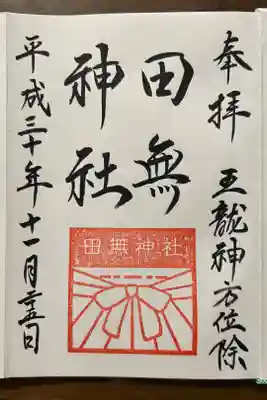 奉拝 五龍神方位除
田無
神社
平成三十年十一月二十五日
田無神社